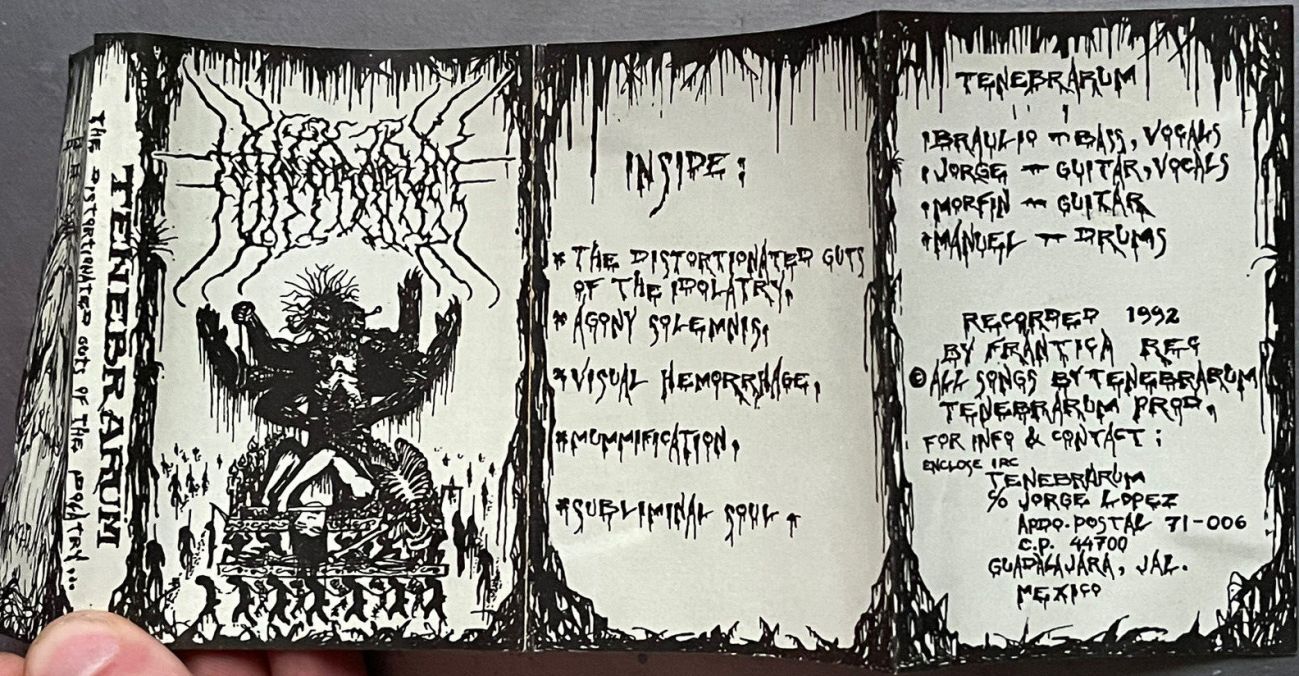 TENEBRARUM
THE DISTORTIONATED GUTS OF THE IDOLATRY...
TENEBRARUM
INSIDE:
* THE DISTORTIONATED GUTS
OF THE IDOLATRY,
* AGONY SOLEMNIS,
* VISUAL HEMORRHAGE,
* MUMMIFICATION,
* SUBLIMINAL SOUL,
TENEBRARUM
BRAULIO — BASS, VOCALS
JORGE — GUITAR, VOCALS
MORFIN — GUITAR
MANUEL — DRUMS
RECORDED 1992
BY FRANTICA REC
© ALL SONGS BY TENEBRARUM
TENEBRARUM PROD.
FOR INFO & CONTACT:
ENCLOSE IRC
TENEBRARUM
C/O JORGE LOPEZ
APDO.POSTAL 71-006
C.P. 44700
GUADALAJARA, JAL.
MEXICO